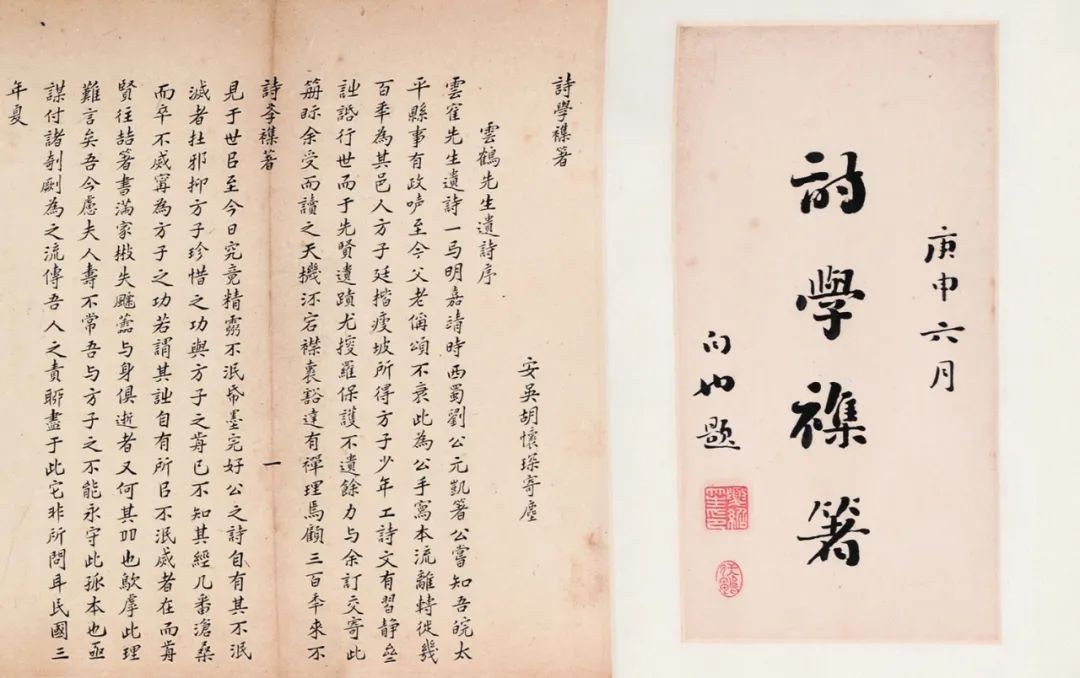 庚申六月
詩學襍箸
題
詩學襍箸
雲鶴先生遺詩序
安吳胡懷琛寄塵
雲隺先生遺詩一弓明嘉靖時西蜀劉公元凱箸公嘗知吾皖太
平縣事有政聲至今父老偁頌不衰此為公手寫本流離轉徙幾
百秊為其邑人方子廷楷瘦坡所得方子少年工詩文有習静
詩話行世而于先賢遺蹟尤搜羅保護不遺餘力与余訂交寄此
冊眎余受而讀之天機宕襟裏豁達有禪理焉顧三百秊來不
詩斈襍著
一
見于世㠯至今日究竟精靈不泯帋墨完好公之詩自有其不泯
滅者在邪抑方子珍惜之功與方子之歬已不知其經几番滄桑
而卒不烕寧為方子之功若謂其詩自有所㠯不泯烕者在而歬
賢往喆箸書滿家散失飄蘦与身俱逝者又何其也歟虖此理
難言矣吾今慮夫人壽不常吾与方子之不能永守此孤本也亟
謀付諸剞劂為之流傳吾人之責聊盡于此它非所問耳民國三
年夏